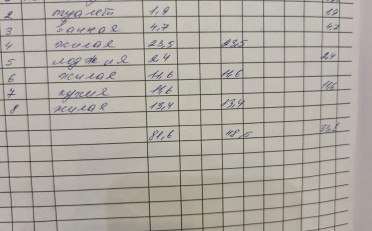 2 туалет 1,9 1,9
3 ванная 4,7 4,7
4 жилая 23,5 23,5
5 лоджия 2,4 2,4
6 жилая 11,6 11,6
7 кухня 11,6 11,6
8 жилая 13,4 13,4
81,6 48,5